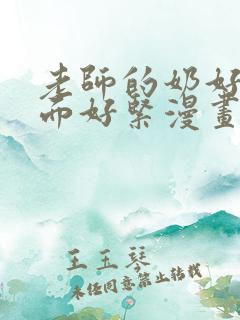 老師的奶好
而好緊漫畫
王玉琴
未經同意禁止轉載